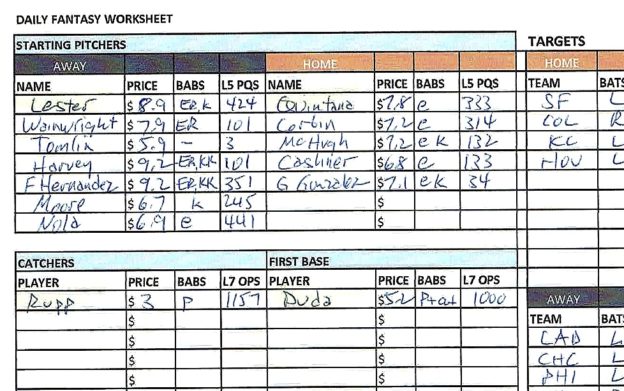 DAILY FANTASY WORKSHEET
STARTING PITCHERS TARGETS
AWAY HOME HOME
NAME PRICE BABS L5 PQS NAME PRICE BABS L5 PQS TEAM BATS
Lester $8.9 ER,K 424 Quintana $7.8 e 333 SF L
Wainwright $7.9 ER 101 Corbin $7.2 e 314 COL R
Tomlin $5.9 - 3 McHugh $7.2 e K 132 KC L
Harvey $9.2 ER,KK 101 Cashner $6.8 e 133 HOU L
F Hernandez $9.2 ER,KK 351 G Gonzalez $7.1 e K 34
Moore $6.7 K 245 $
Nola $6.9 e 441 $
CATCHERS FIRST BASE
PLAYER PRICE BABS L7 OPS PLAYER PRICE BABS L7 OPS AWAY
Rupp $3 P 1157 Duda $5.2 1000
$ $ TEAM BATS
$ $ LAD L
$ $ CHC L
$ $ PHI L